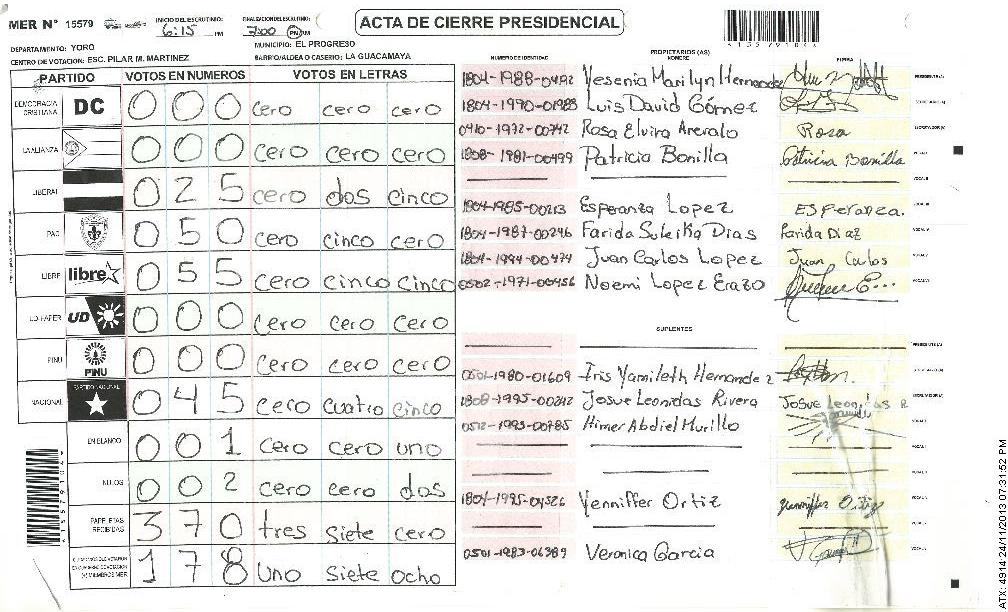 MER N° 15579
INICIO DEL ESCRUTINIO: 6:15 PM
FINALIZACION DEL ESCRUTINIO: 7:00 PM
ACTA DE CIERRE PRESIDENCIAL
DEPARTAMENTO: YORO
MUNICIPIO: EL PROGRESO
CENTRO DE VOTACION: ESC. PILAR M. MARTINEZ
BARRIO/ALDEA O CASERIO: LA GUACAMAYA
PARTIDO VOTOS EN NUMEROS VOTOS EN LETRAS
DEMOCRACIA CRISTIANA DC 0 0 0 cero cero cero
LA ALIANZA 0 0 0 cero cero cero
LIBERAL 0 2 5 cero dos cinco
PAC 0 5 0 cero cinco cero
LIBRE libre 0 5 5 cero cinco cinco
UD FAPER UD 0 0 0 cero cero cero
PINU PINU 0 0 0 cero cero cero
NACIONAL PARTIDO NACIONAL 0 4 5 cero cuatro cinco
EN BLANCO 0 0 1 cero cero uno
NULOS 0 0 2 cero cero dos
PAPELETAS RECIBIDAS 3 7 0 tres siete cero
1 7 8 uno siete ocho
NUMERO DE IDENTIDAD PROPIETARIOS (AS) NOMBRE FIRMA
1804-1988-00492 Yesenia Marilyn Hernandez PRESIDENTE(A)
1804-1990-01983 Luis David Gómez SECRETARIO(A)
0410-1972-00742 Rosa Elvira Arevalo Rosa ESCRUTADOR(A)
1808-1981-00499 Patricia Bonilla Patricia Bonilla VOCAL I
VOCAL II
1804-1985-00213 Esperanza Lopez Esperanza. VOCAL III
1804-1987-00246 Farida Suleika Dias Farida Diaz VOCAL IV
1804-1994-00474 Juan Carlos Lopez Juan Carlos VOCAL V
0502-1971-00456 Noemi Lopez Erazo VOCAL VI
SUPLENTES
PRESIDENTE(A)
0501-1980-01609 Iris Yamileth Hernandez SECRETARIO(A)
1808-1995-00242 Josue Leonidas Rivera Josue Leonidas R ESCRUTADOR(A)
0512-1993-00785 Himer Abdiel Murillo
VOCAL II
1804-1995-04526 Yenniffer Ortiz Yenniffer Ortiz
0501-1983-06389 Veronica Garcia
4155791044
ATX: 4914-24/11/2013 07:31:52 PM